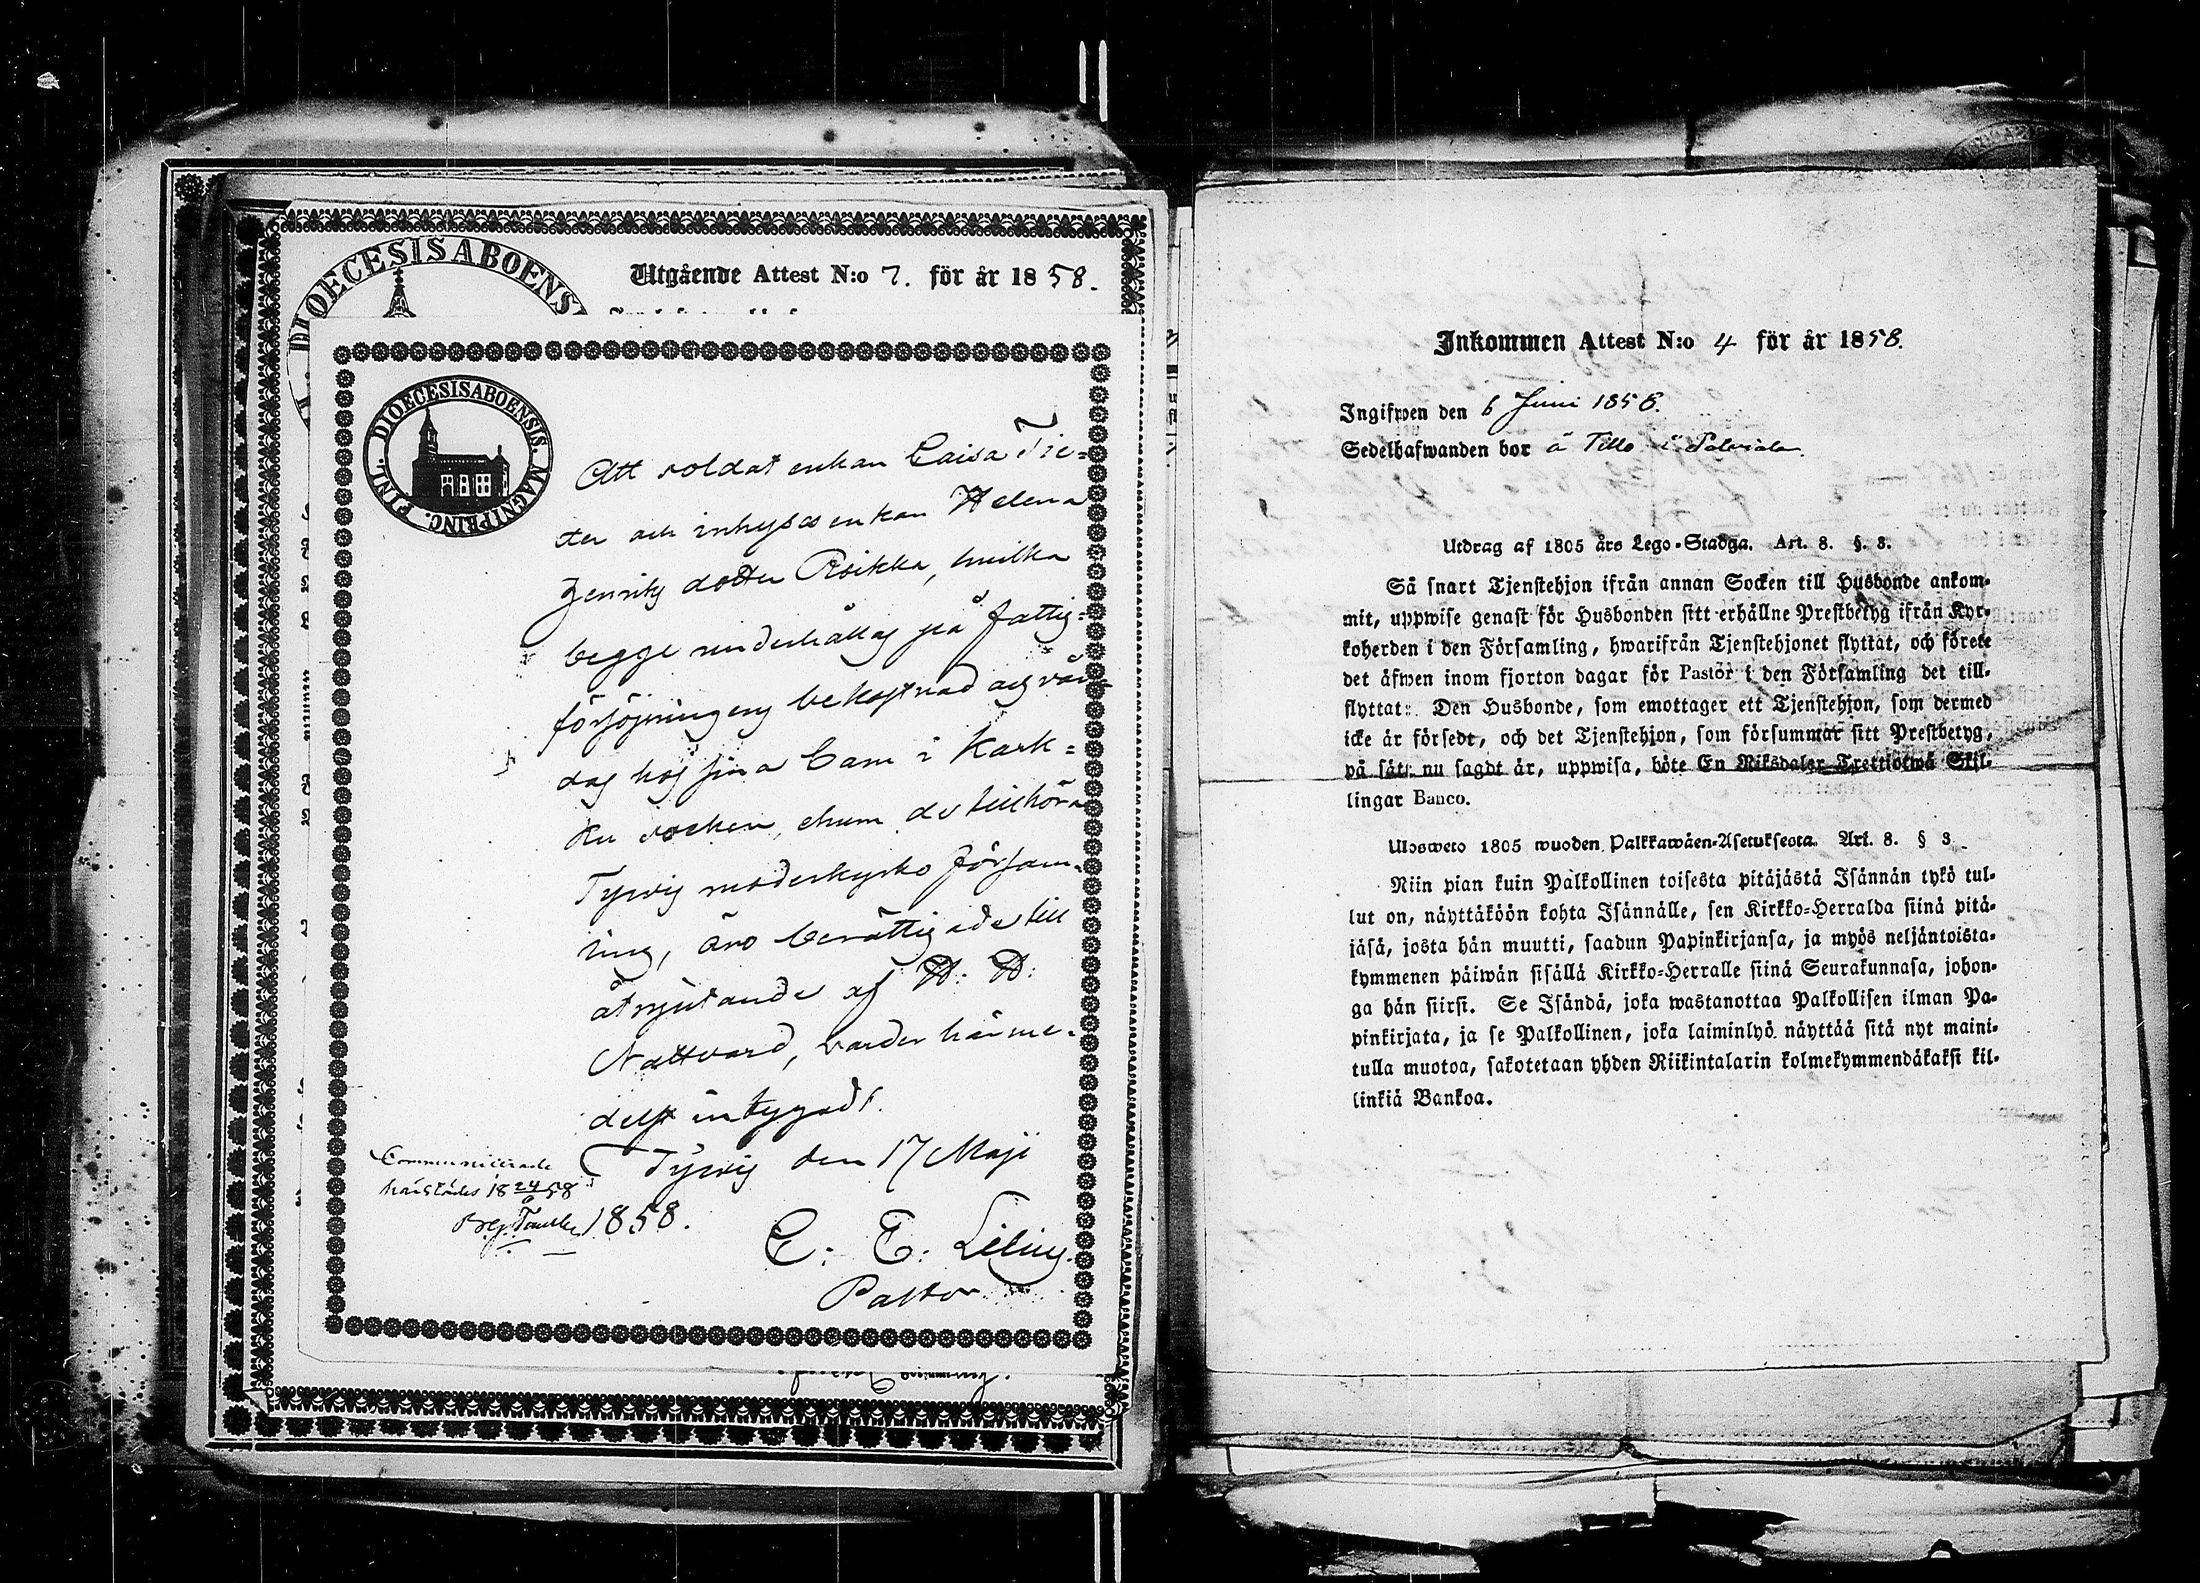 Utgående Attest N:o 7. för år 1858.
DIOECESIS ABOENS
FINL. DIOECESIS ABOENSIS. MAGNI PRINC.
Att soldat enkan Caisa Tie=
ter och inhyses enkan Helena
Henriks dotter Roikka, hvilka
begge underhållas på fattig=
försörjningens bekostnad och vår-
das hos sina barn i Kark=
ku socken, ehuru de tillhöra
Tyrvis moderkyrko försam-
ling, äro berättigade till
åtnjutande af H. H.
Nattvard, varder härme-
delst intygadt.
Tyrvis den 17 Maji
1858.
C. E. Lilius.
Pastor
Communicerade
härstädes 18 24/6 58
Inkommen Attest N:o 4 för år 1858.
Ingifwen den 6 Juni 1858.
Sedelhafwanden bor å
Utdrag af 1805 års Lego-Stadga. Art. 8. §. 3.
Så snart Tjenstehjon ifrån annan Socken till Husbonde ankom-
mit, uppwise genast för Husbonden sitt erhållne Prestbetyg ifrån Kyr-
koherden i den Församling, hwarifrån Tjenstehjonet flyttat, och förete
det äfwen inom fjorton dagar för Pastor i den Församling det till-
flyttat: Den Husbonde, som emottager ett Tjenstehjon, som dermed
icke är försedt, och det Tjenstehjon, som försummar sitt Prestbetyg,
på sätt nu sagdt är, uppwisa, böte En Riksdaler Trettiotwå Skil-
lingar Banco.
Ulosweto 1805 wuoden Palkkawäen-Asetuksesta. Art. 8. § 3.
Niin pian kuin Palkollinen toisesta pitäjästä Isännän tykö tul-
lut on, näyttäköön kohta Isännälle, sen Kirkko-Herralda siinä pitä-
jäsä, josta hän muutti, saadun Papinkirjansa, ja myös neljäntoista-
kymmenen päiwän sisällä Kirkko-Herralle siinä Seurakunnasa, johon-
ga hän siirsi. Se Isändä, joka wastanottaa Palkollisen ilman Pa-
pinkirjata, ja se Palkollinen, joka laiminlyö näyttää sitä nyt maini-
tulla muotoa, sakotetaan yhden Riikintalarin kolmekymmendäkaksi kil-
linkiä Bankoa.